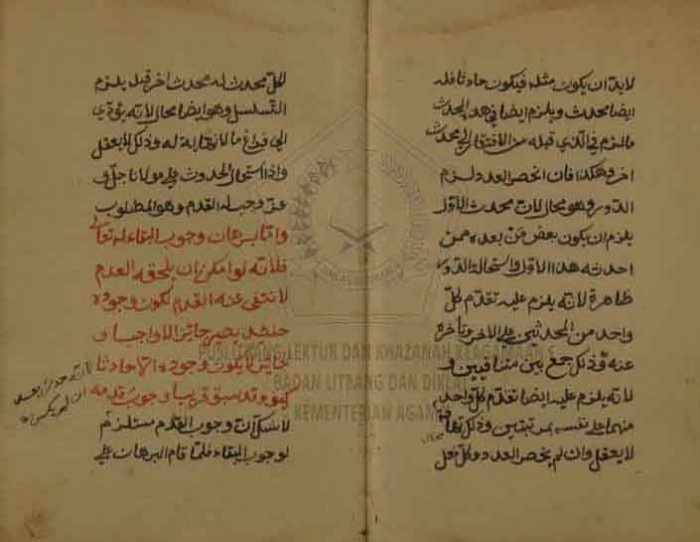 لابد ان يكون مثله فيكون حادثا فله
ايضا محدث ويلزم ايضا في هذا المحدث
ما لزم في الذي قبله من الافتقار الى محدث
اخر وهكذا فان انحصر العدد لزم
الدور وهو محال لان محدث الاول
يلزم ان يكون بعض من بعده ممن
احدثه هذا الاول واستحالة الدور
ظاهرة لانه يلزم عليه تقدم كل
واحد من المحدثين على الاخر وتأخره
عنه وذلك جمع بين متنافيين و
لانه يلزم عليه ايضا تقدم كل واحد
منهما على نفسه بمرتبتين وذلك
لا يعقل وان لم ينحصر العدد وكان قبل
لكل محدث له محدث اخر قبل يلزم
التسلسل وهو ايضا محال لانه يؤدي
الى فراغ ما لا نهاية له وذلك لا يعقل
واذا استحال الحدوث على مولانا جل و
عز وجب له القدم وهو المطلوب
واما برهان وجوب البقاء له تعالى
فلانه لو امكن ان يلحقه العدم
لانتفى عنه القدم لكون وجوده
حينئذ يصير جائزا لا واجبا و
الجائز لا يكون وجوده الا حادثا
كيف وقد سبق قريبا وجوب قدمه
لا شك ان وجوب القدم مستلزم
لوجوب البقاء فلما قام البرهان على
PUSLITBANG LEKTUR DAN KHAZANAH KEAGAMAAN
BADAN LITBANG DAN DIKLAT
KEMENTERIAN AGAMA